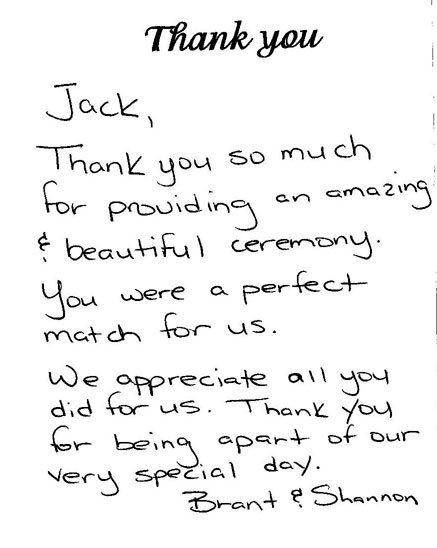 Thank you
Jack,
Thank you so much
for providing an amazing
& beautiful ceremony.
You were a perfect
match for us.
We appreciate all you
did for us. Thank you
for being apart of our
very special day.
Brant & Shannon